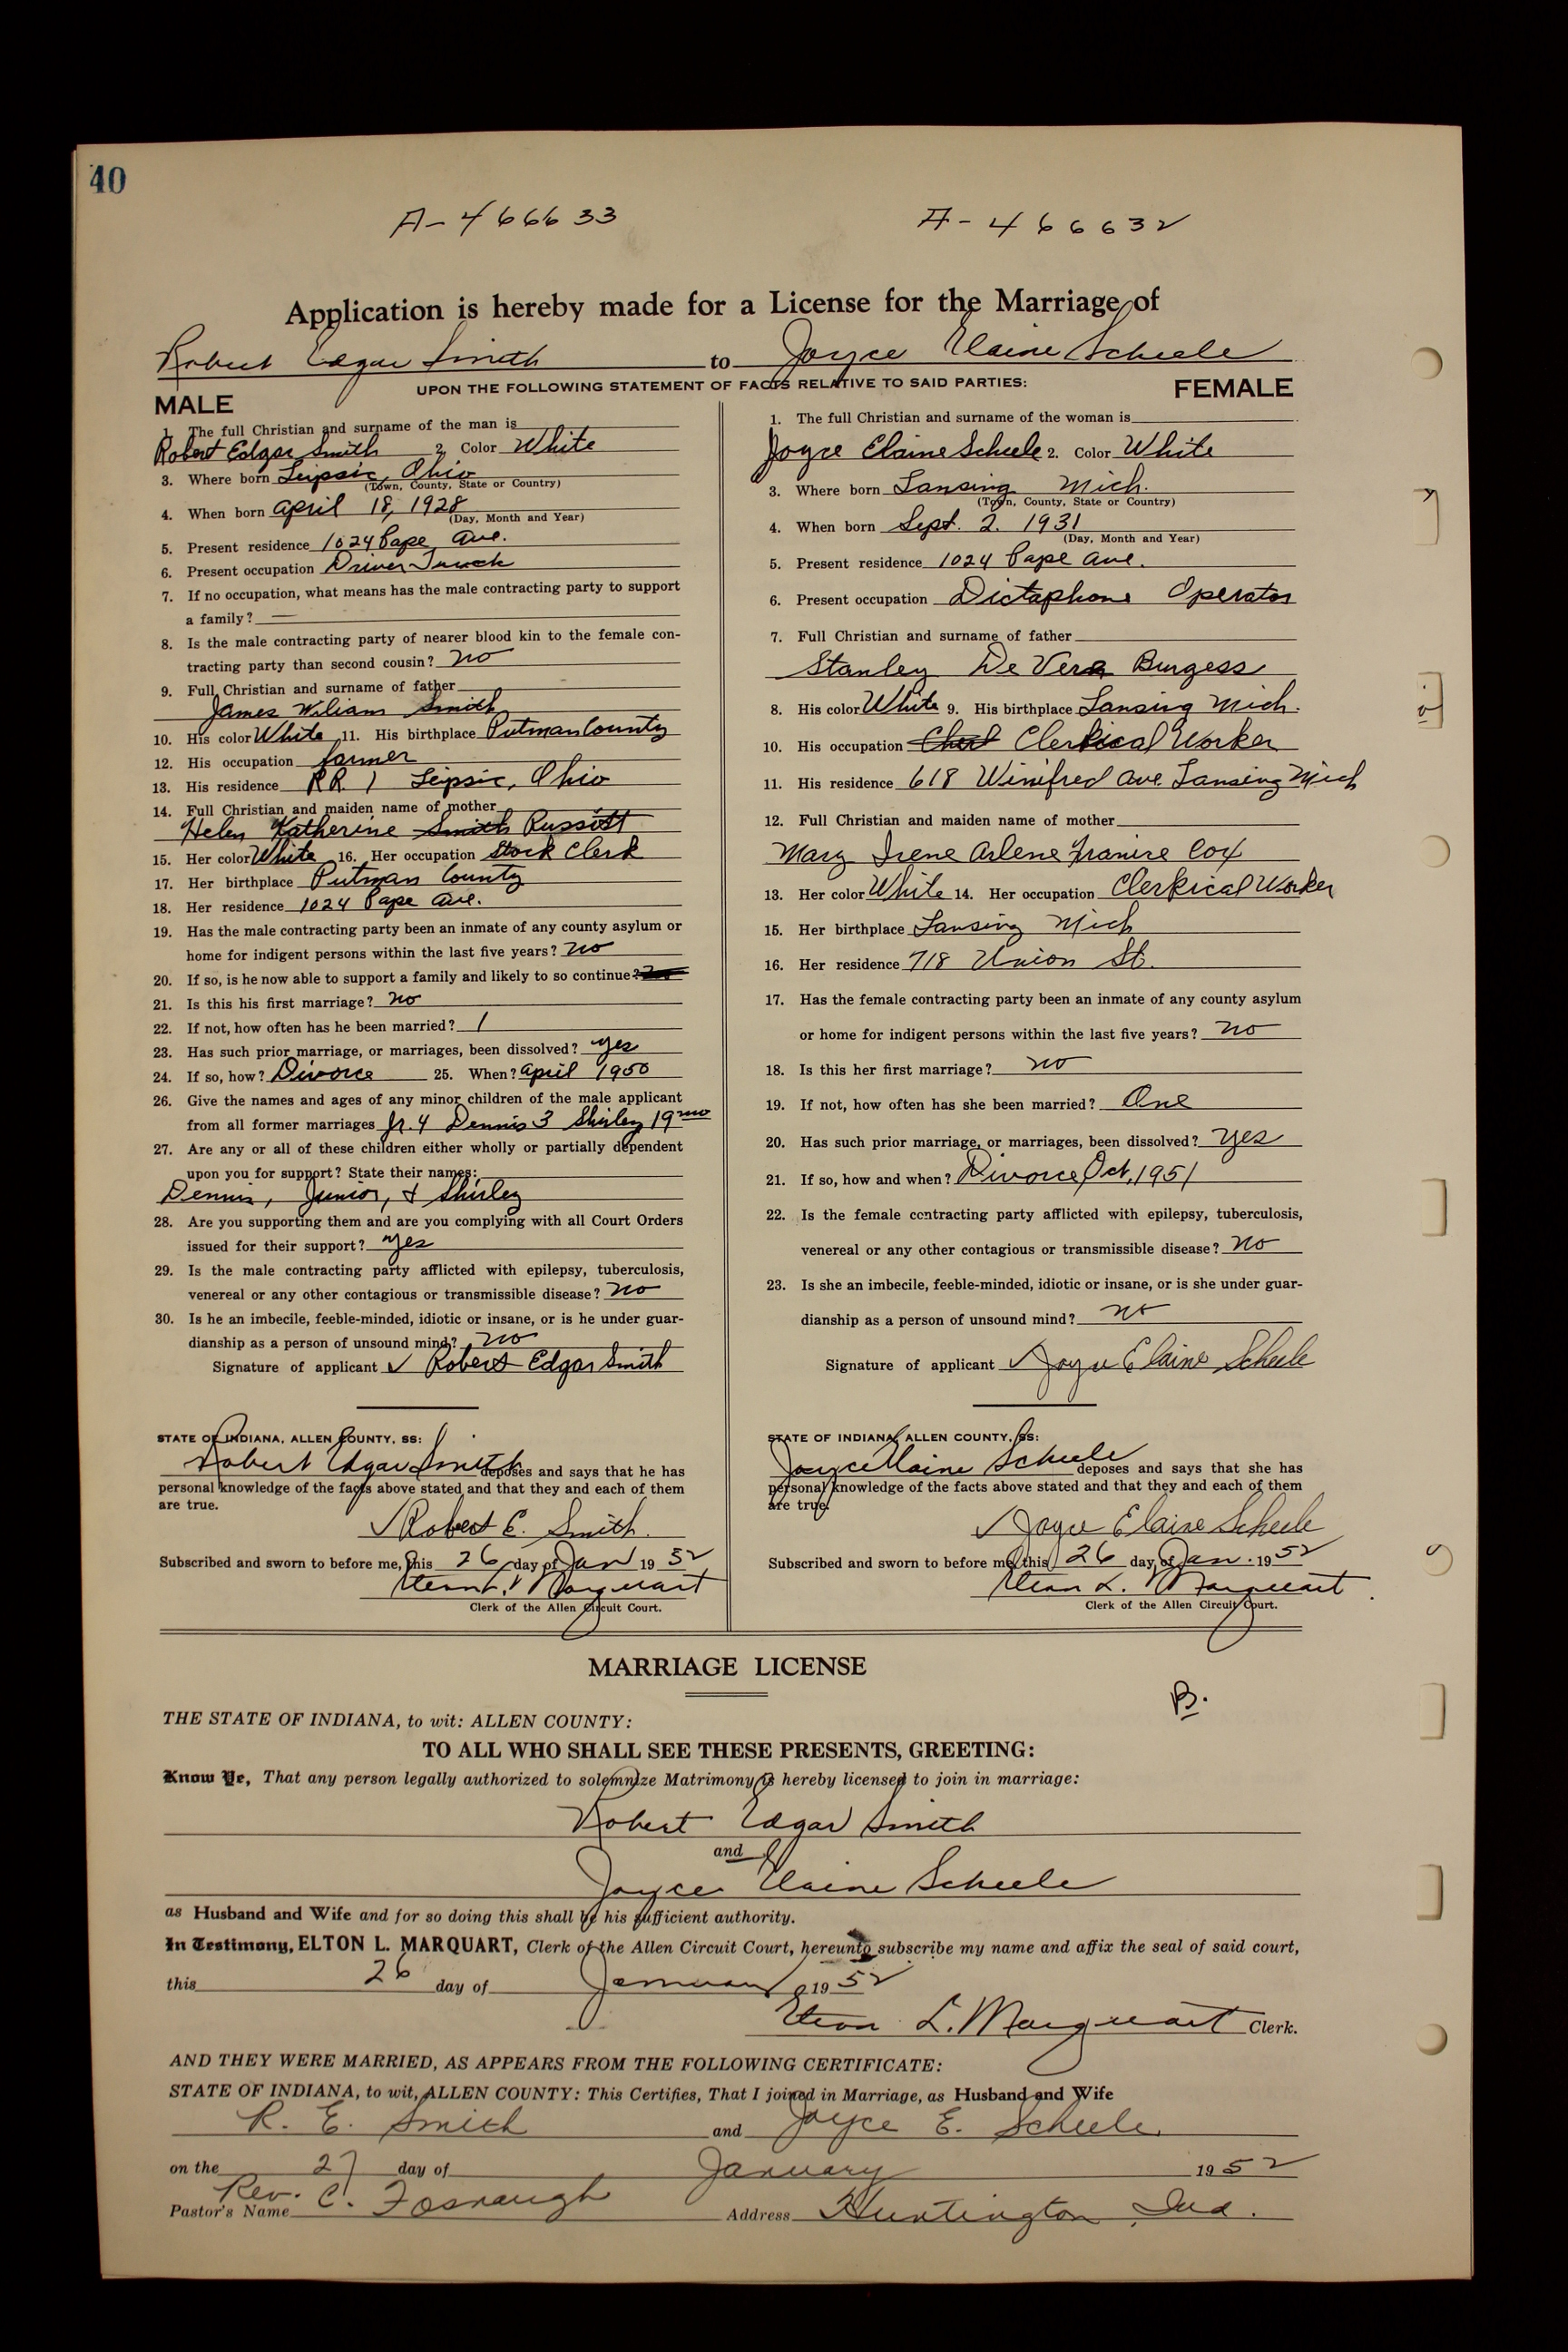 40
A-466633 A-466632
Application is hereby made for a License for the Marriage of
Robert Edgar Smith to Joyce Elaine Scheele
UPON THE FOLLOWING STATEMENT OF FACTS RELATIVE TO SAID PARTIES:
MALE
1. The full Christian and surname of the man is
Robert Edgar Smith 2. Color White
3. Where born Leipsic, Ohio
(Town, County, State or Country)
4. When born April 18, 1928
(Day, Month and Year)
5. Present residence 1024 Pape Ave.
6. Present occupation Driver Truck
7. If no occupation, what means has the male contracting party to support
a family? —
8. Is the male contracting party of nearer blood kin to the female con-
tracting party than second cousin? no
9. Full Christian and surname of father
James Wiliam Smith
10. His color White 11. His birthplace Putman County
12. His occupation farmer
13. His residence RR. 1 Leipsic, Ohio
14. Full Christian and maiden name of mother
Helen Katherine Smith Russitt
15. Her color White 16. Her occupation Stock Clerk
17. Her birthplace Putman County
18. Her residence 1024 Pape Ave.
19. Has the male contracting party been an inmate of any county asylum or
home for indigent persons within the last five years? no
20. If so, is he now able to support a family and likely to so continue?
21. Is this his first marriage? no
22. If not, how often has he been married? 1
23. Has such prior marriage, or marriages, been dissolved? yes
24. If so, how? Divorce 25. When? April 1950
26. Give the names and ages of any minor children of the male applicant
from all former marriages Jr. 4 Dennis 3 Shirley 19 mo
27. Are any or all of these children either wholly or partially dependent
upon you for support? State their names:
Dennis, Junior, & Shirley
28. Are you supporting them and are you complying with all Court Orders
issued for their support? yes
29. Is the male contracting party afflicted with epilepsy, tuberculosis,
venereal or any other contagious or transmissible disease? no
30. Is he an imbecile, feeble-minded, idiotic or insane, or is he under guar-
dianship as a person of unsound mind? no
Signature of applicant ✓ Robert Edgar Smith
STATE OF INDIANA, ALLEN COUNTY, SS:
Robert Edgar Smith deposes and says that he has
personal knowledge of the facts above stated and that they and each of them
are true.
✓ Robert E. Smith.
Subscribed and sworn to before me, this 26 day of Jan 1952
Elton L. Marquart
Clerk of the Allen Circuit Court.
FEMALE
1. The full Christian and surname of the woman is
Joyce Elaine Scheele 2. Color White
3. Where born Lansing Mich.
(Town, County, State or Country)
4. When born Sept. 2. 1931
(Day, Month and Year)
5. Present residence 1024 Pape Ave.
6. Present occupation Dictaphone Operator
7. Full Christian and surname of father
Stanley De Vera Burgess
8. His color White 9. His birthplace Lansing Mich.
10. His occupation Clerkical Worker
11. His residence 618 Winifred Ave. Lansing Mich
12. Full Christian and maiden name of mother
Mary Irene Arlene Cox
13. Her color White 14. Her occupation Clerkical Worker
15. Her birthplace Lansing Mich
16. Her residence 718 Union St.
17. Has the female contracting party been an inmate of any county asylum
or home for indigent persons within the last five years? no
18. Is this her first marriage? no
19. If not, how often has she been married? One
20. Has such prior marriage, or marriages, been dissolved? yes
21. If so, how and when? Divorce, Oct, 1951
22. Is the female contracting party afflicted with epilepsy, tuberculosis,
venereal or any other contagious or transmissible disease? no
23. Is she an imbecile, feeble-minded, idiotic or insane, or is she under guar-
dianship as a person of unsound mind? no
Signature of applicant ✓ Joyce Elaine Scheele
STATE OF INDIANA, ALLEN COUNTY, SS:
Joyce Elaine Scheele deposes and says that she has
personal knowledge of the facts above stated and that they and each of them
are true.
✓ Joyce Elaine Scheele
Subscribed and sworn to before me, this 26 day of Jan. 1952
Elton L. Marquart
Clerk of the Allen Circuit Court.
MARRIAGE LICENSE
B.
THE STATE OF INDIANA, to wit: ALLEN COUNTY:
TO ALL WHO SHALL SEE THESE PRESENTS, GREETING:
Know Ye, That any person legally authorized to solemnize Matrimony is hereby licensed to join in marriage:
Robert Edgar Smith
and
Joyce Elaine Scheele
as Husband and Wife and for so doing this shall be his sufficient authority.
In Testimony, ELTON L. MARQUART, Clerk of the Allen Circuit Court, hereunto subscribe my name and affix the seal of said court,
this 26 day of January 1952
Elton L. Marquart Clerk.
AND THEY WERE MARRIED, AS APPEARS FROM THE FOLLOWING CERTIFICATE:
STATE OF INDIANA, to wit, ALLEN COUNTY: This Certifies, That I joined in Marriage, as Husband and Wife
R. E. Smith and Joyce E. Scheele.
on the 27 day of January 1952
Pastor's Name Rev. C. Fosnaugh Address Huntington, Ind.